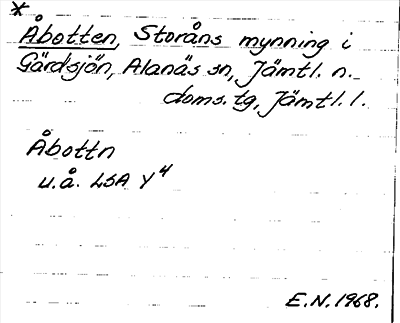 *
Åbotten, Storåns mynning i
Gärdsjön, Alanäs sn, Jämtl. n.
doms. tg, Jämtl. l.
Åbottn
u.å. LSA Y⁴
E.N. 1968.